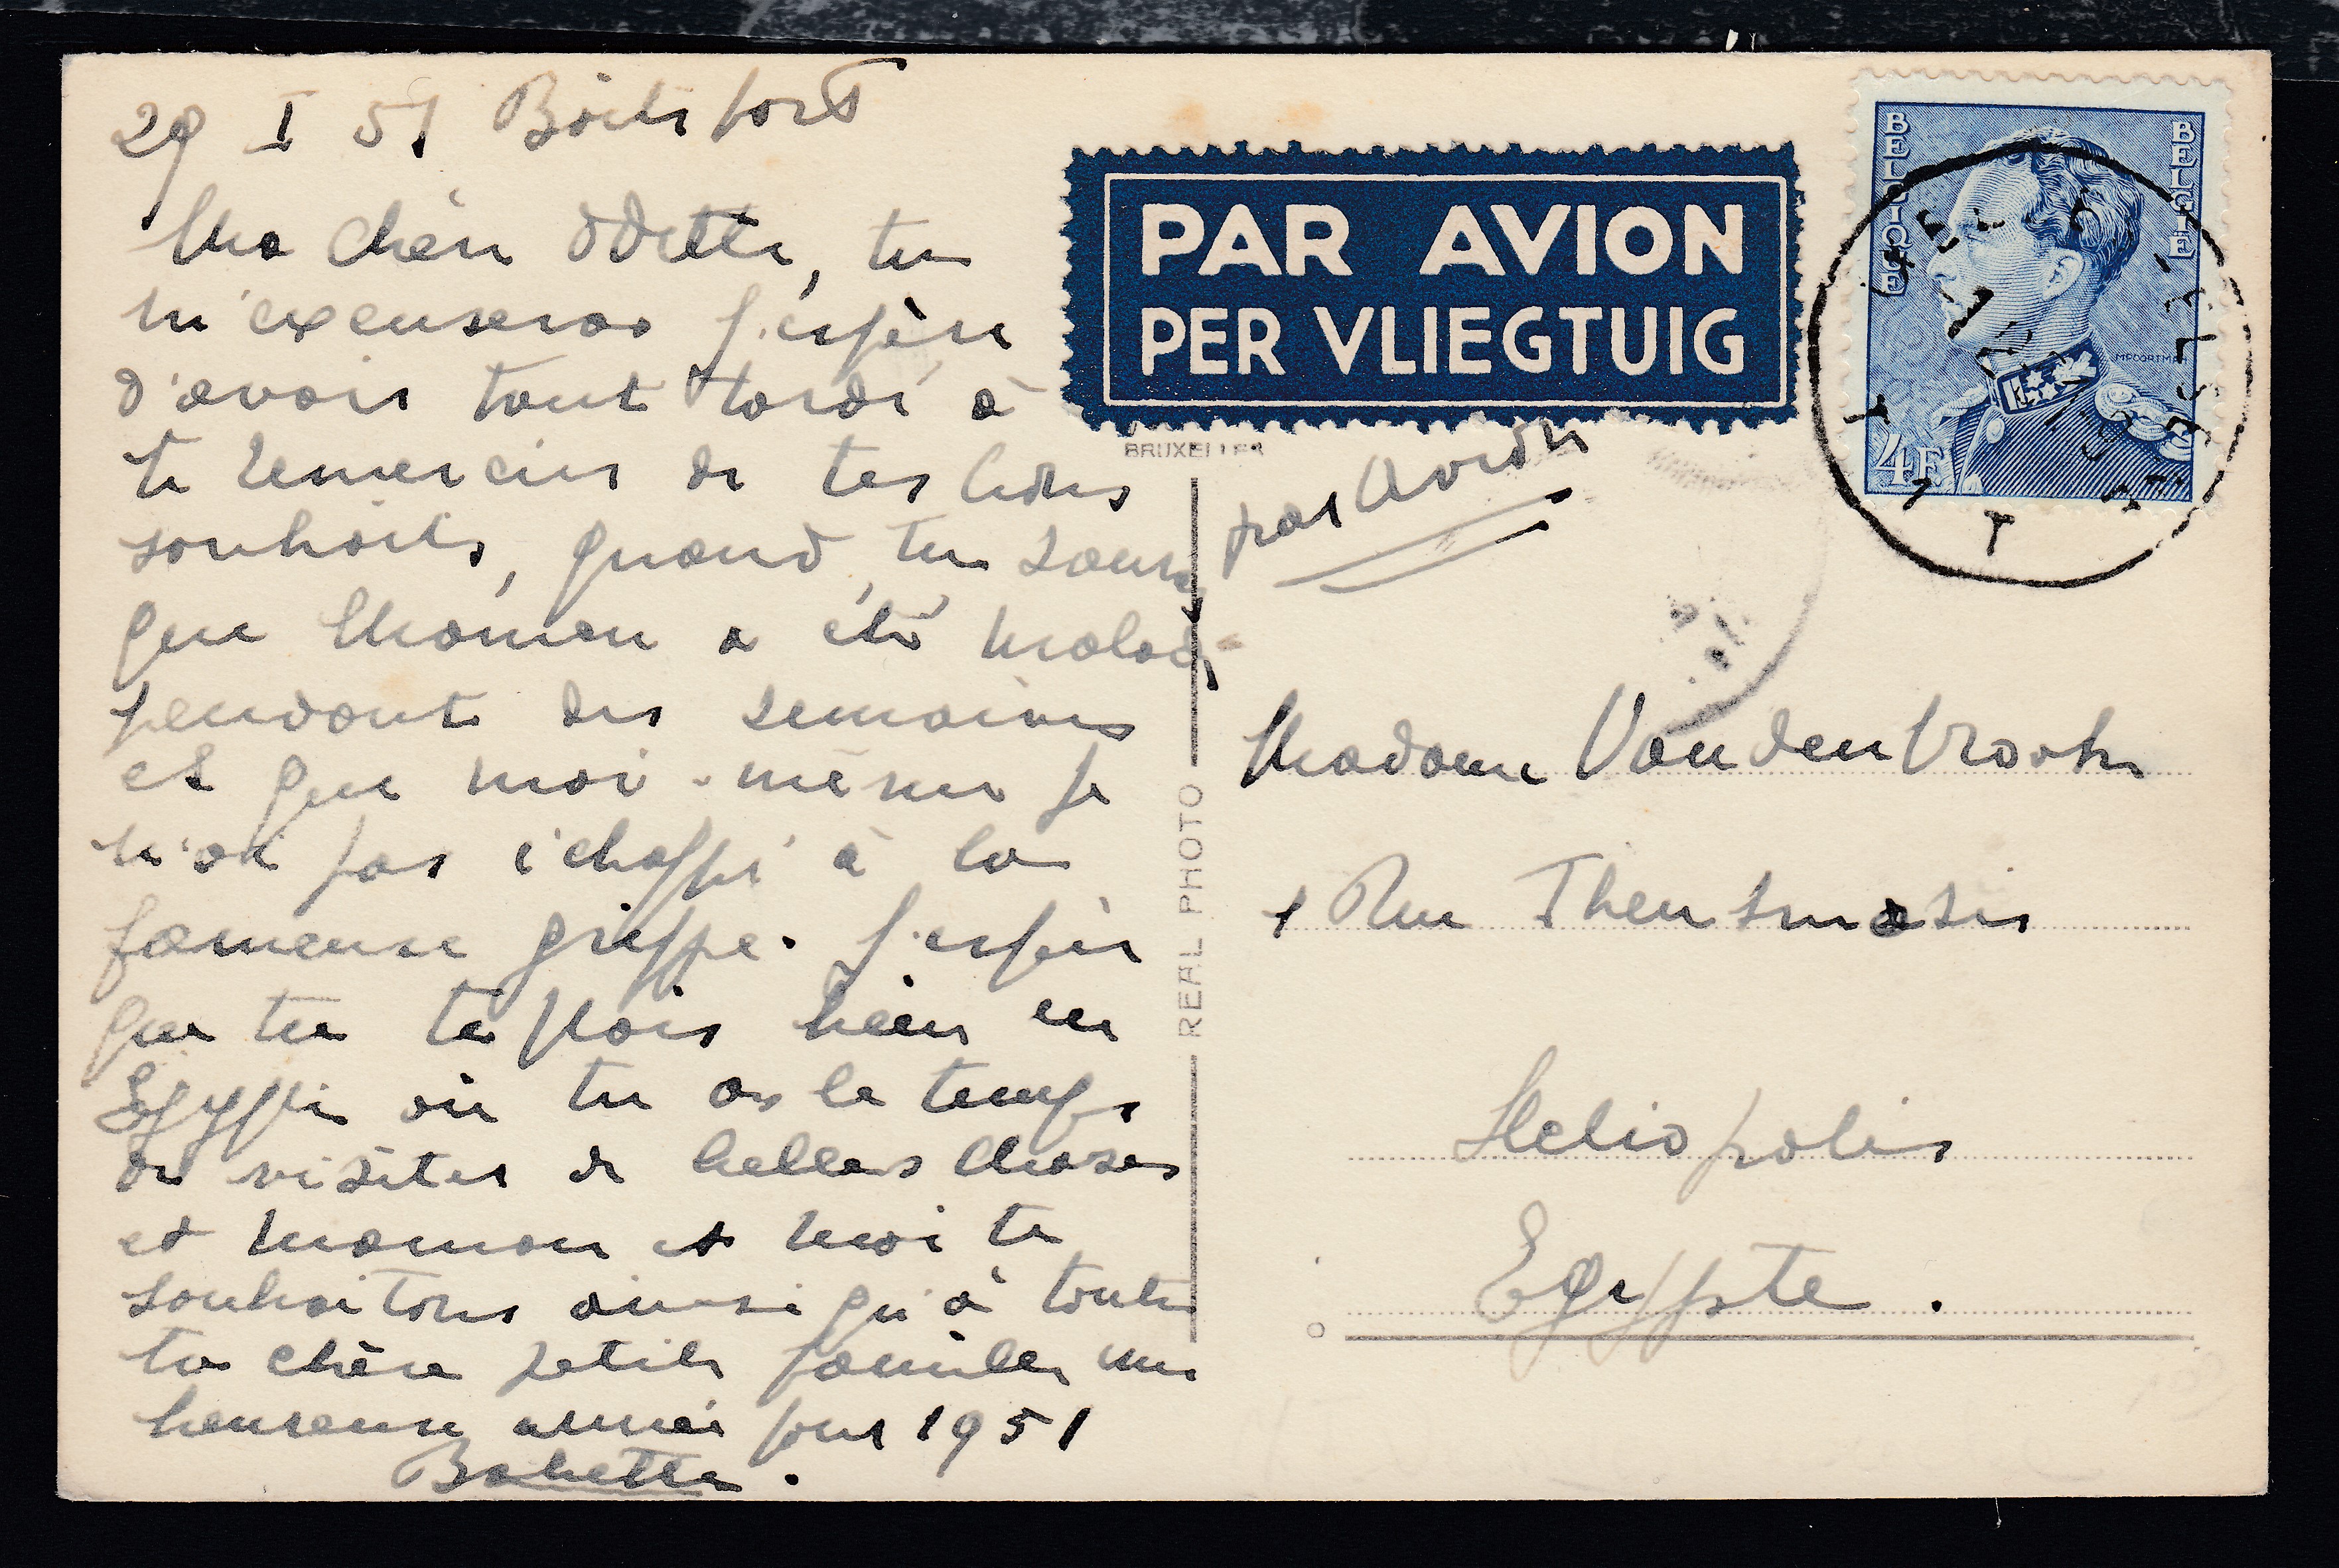 29 I 51 Boitsfort
Ma chère Odette, tu
m'excuseras j'espère
d'avoir tant tardé à
te remercier de tes bons
souhaits, quand tu sauras
que Maman a été malade
pendant des semaines
et que moi-même je
n'ai pas échappé à la
fameuse grippe. J'espère
que tu te plais bien en
Egypte où tu as le temps
de visiter de belles choses
et maman et moi te
souhaitons ainsi qu'à toute
ta chère petite famille une
heureuse année pour 1951
Babette.
PAR AVION
PER VLIEGTUIG
BRUXELLES
par avion
REAL PHOTO
BELGIQUE
BELGIE
M.POORTMAN
4F
Madame Vanden
1 Rue
Heliopolis
Egypte.